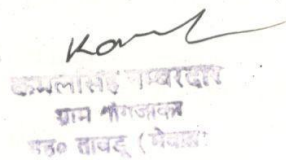 कमलसिंह नम्बरदार
ग्राम
तह० तावडू (मेवात)